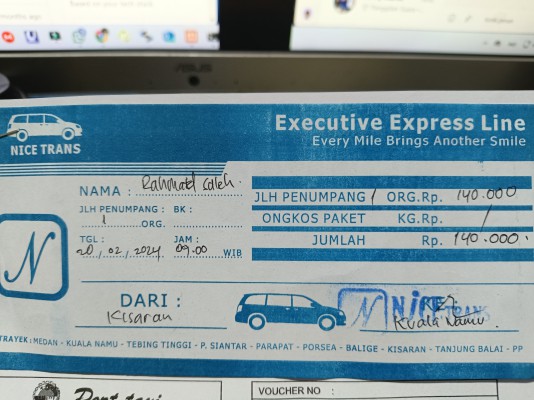 ASUS
NICE TRANS
Executive Express Line
Every Mile Brings Another Smile
NAMA : Rahmad Saleh
JLH PENUMPANG : BK :
1 ORG.
TGL : JAM :
20, 02, 2024 09.00 WIB
JLH PENUMPANG 1 ORG.Rp. 140.000
ONGKOS PAKET KG.Rp. /
JUMLAH Rp. 140.000.
N
DARI :
Kisaran
N NICE TRANS
KE :
Kuala Namu.
TRAYEK : MEDAN - KUALA NAMU - TEBING TINGGI - P. SIANTAR - PARAPAT - PORSEA - BALIGE - KISARAN - TANJUNG BALAI - PP
VOUCHER NO :